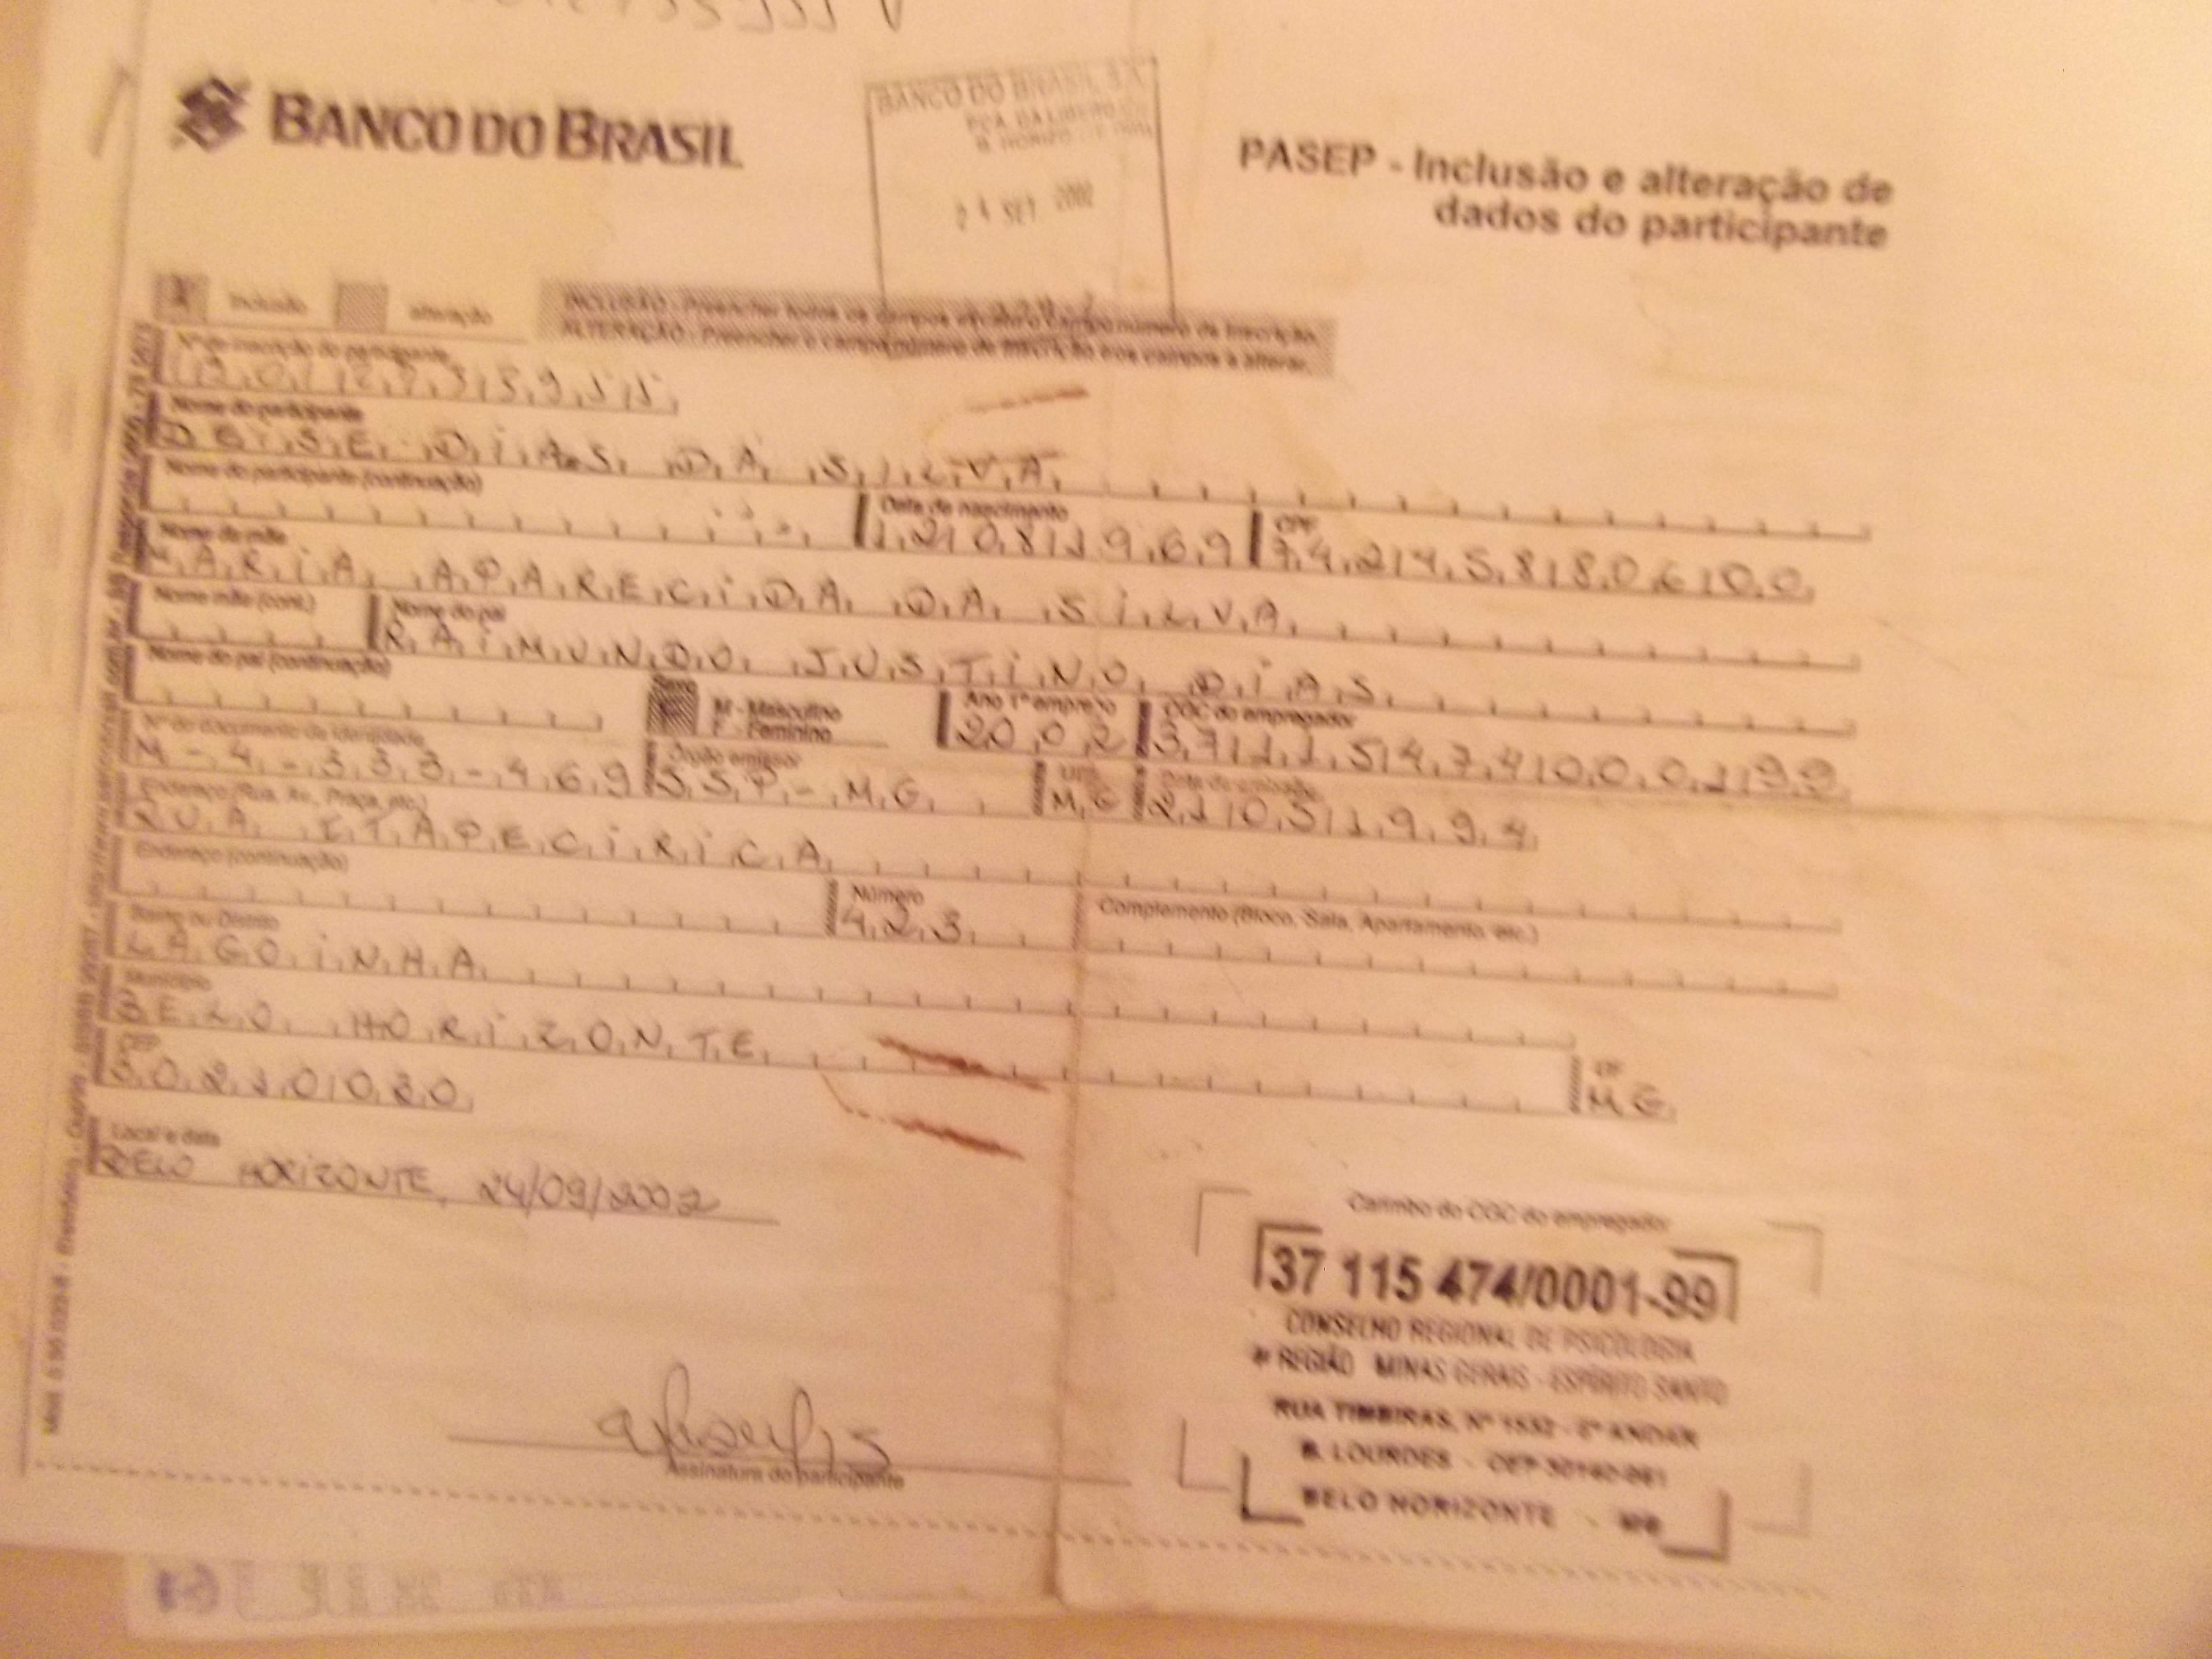 BANCO DO BRASIL
BANCO DO BRASIL S.A.
24 SET 2002
PASEP - Inclusão e alteração de
dados do participante
X inclusão alteração
INCLUSÃO - Preencher todos os campos exceto o campo número de inscrição.
ALTERAÇÃO - Preencher o campo número de inscrição e os campos a alterar.
Nº de inscrição do participante
Nome do participante
DEISE DIAS DA SILVA
Nome do participante (continuação) Data de nascimento CPF
12081969 74245880600
Nome da mãe
MARIA APARECIDA DA SILVA
Nome mãe (cont.) Nome do pai
RAIMUNDO JUSTINO DIAS
Nome do pai (continuação) Sexo M - Masculino F - Feminino Ano 1º emprego CGC do empregador
2002 37115474000199
Nº do documento de identidade Órgão emissor UF Data de emissão
M-4-333-469 SSP-MG MG 21051994
Endereço (Rua, Av., Praça, etc.)
RUA ITAPECIRICA
Endereço (continuação) Número Complemento (Bloco, Sala, Apartamento, etc.)
423
Bairro ou Distrito
LAGOINHA
Município UF
BELO HORIZONTE MG
CEP
Local e data
BELO HORIZONTE, 24/09/2002
Assinatura do participante
Carimbo do CGC do empregador
37 115 474/0001-99
CONSELHO REGIONAL DE PSICOLOGIA
4ª REGIÃO MINAS GERAIS - ESPÍRITO SANTO
RUA TIMBIRAS, Nº 1532 - 6º ANDAR
B. LOURDES - CEP 30140-061
BELO HORIZONTE - MG